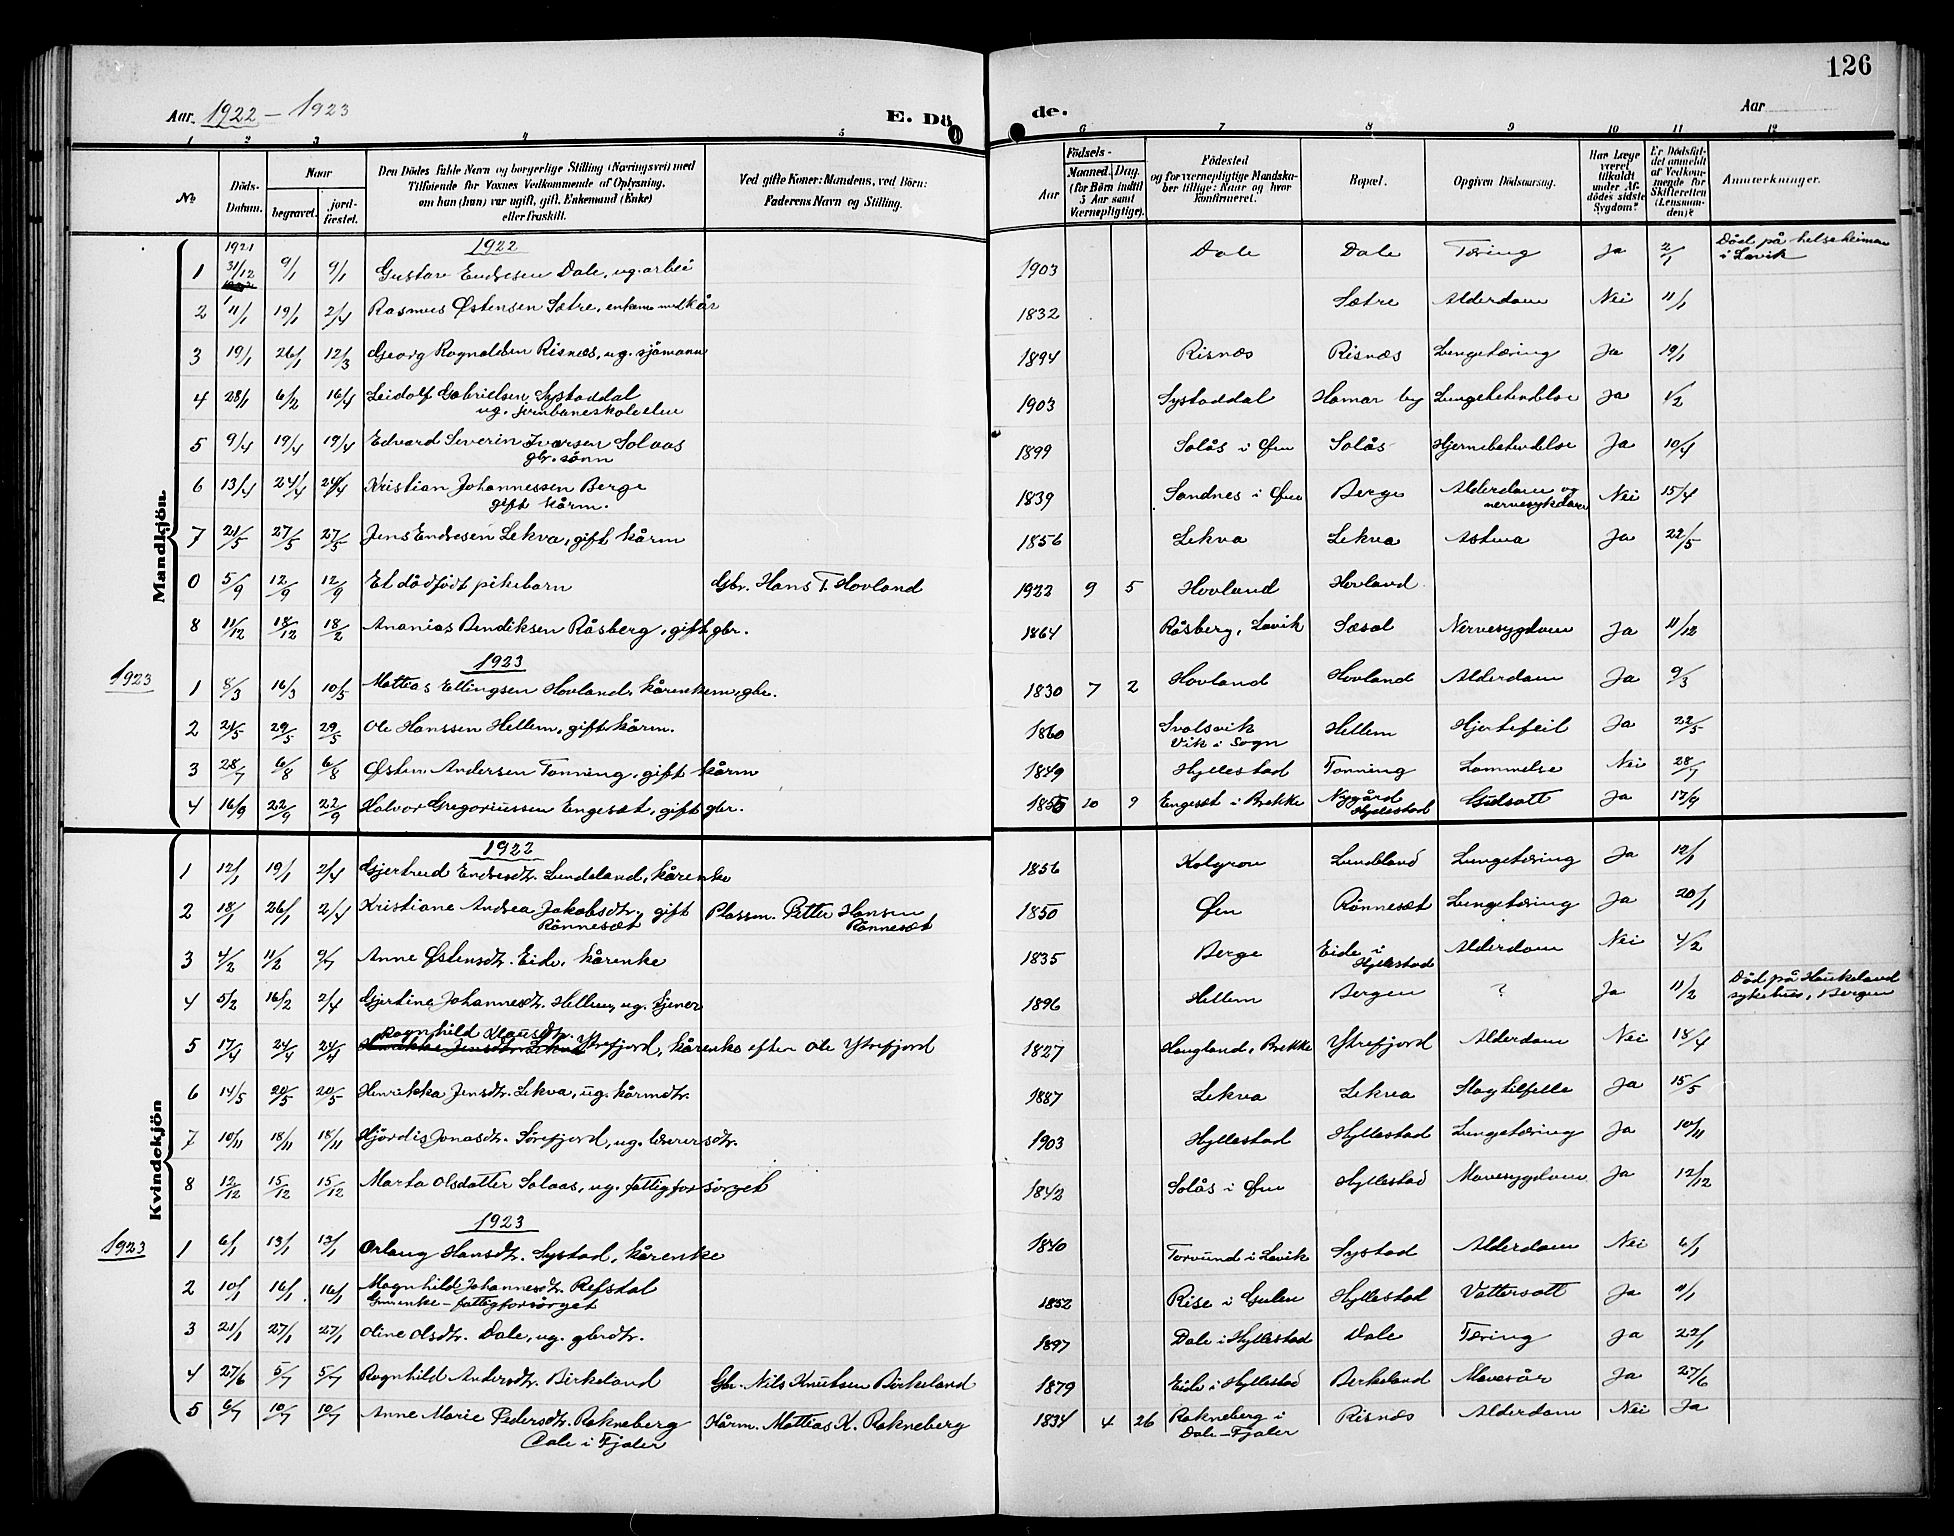 126
Aar 1922 - 1923
E. Dö de.
Aar
1 2 3 4 5 6 7 8 9 10 11 12
No
Döds-Datum.
Naar
begravet.
jordfæstet.
Den Dödes fulde Navn og borgerlige Stilling (Næringsvei) med
Tilföiende for Voxnes Vedkommende af Oplysning,
om han (hun) var ugift, gift, Enkemand (Enke)
eller fraskilt.
Ved gifte Koner: Mandens, ved Börn:
Faderens Navn og Stilling.
Födsels-
Aar
Maaned. Dag.
(for Börn indtil
5 Aar samt
Værnepligtige).
Födested
og for værnepligtige Mandskaber tillige: Naar og hvor
konfirmeret.
Bopæl.
Opgiven Dödsaarsag.
Har Læge
været
tilkaldt
under Af-
dödes sidste
Sygdom?
Er Dödsfal-
det anmeldt
af Vedkom-
mende for
Skifteretten
(Lensman-
den)?
Anmærkninger.
Mandkjön
1922
1 1921 31/12 9/1 9/1 Gustav Endresen Dale, ug. arbei 1903 Dale Dale Tæring Ja 2/1 Död på helseheimen i Lavik
2 11/1 19/1 2/4 Rasmus Østensen Sætre, enkem. med kår 1832 Sætre Alderdom Nei 11/1
3 19/1 26/1 12/3 Georg Ragnaldsen Risnæs, ug. sjömann 1894 Risnæs Risnæs Lungetæring Ja 19/1
4 28/1 6/2 16/4 Leidolf Gabrielsen Systaddal ug. jernbaneskoleelev 1903 Systaddal Hamar by Lungebetendelse Ja 1/2
5 9/4 19/4 19/4 Edvard Severin Iversen Solaas gbr. sönn 1899 Solås i Øen Solås Hjernebetendelse Ja 10/4
6 13/4 24/4 24/4 Kristian Johannessen Berge gift kårm. 1839 Sandnes i Øen Berge Alderdom og nervesykdom Nei 15/4
7 21/5 27/5 27/5 Jens Endresen Lekva, gift kårm 1856 Lekva Lekva Astma Ja 22/5
0 5/9 12/9 12/9 Et dödfödt pikebarn Gbr. Hans T. Hovland 1922 9 5 Hovland Hovland
8 11/12 18/12 18/2 Ananias Bendiksen Råsberg, gift gbr. 1864 Råsberg, Lavik Sæsol Nervesygdom Ja 11/12
1923
1923
1 8/3 16/3 10/5 Mattias Ellingsen Hovland, kårenkem, gbr. 1830 7 2 Hovland Hovland Alderdom Ja 9/3
2 21/5 29/5 29/5 Ole Hanssen Hellem, gift kårm. 1860 Svolsvik Vik i Sogn Hellem Hjertefeil Ja 22/5
3 28/7 6/8 6/8 Østen Andersen Tonning, gift kårm 1849 Hyllestad Tonning Lammelse Nei 28/7
4 16/9 22/9 22/9 Halvor Gregoriussen Engesæt, gift gbr. 1855 10 9 Engesæt i Brekke Nygård Hyllestad Gulsott Ja 17/9
Kvindekjön
1922
1 12/1 19/1 2/4 Gjertrud Endresdtr. Lundeland, kårenke 1856 Kolgrov Lundeland Lungetæring Ja 12/1
2 18/1 26/1 2/4 Kristiane Andrea Jakobsdtr, gift Rönnesæt Plassm. Petter Hansen Rönnesæt 1850 Øen Rönnesæt Lungetæring Ja 20/1
3 4/2 11/2 9/7 Anne Østensdtr. Eide, kårenke 1835 Berge Eide i Hyllestad Alderdom Nei 4/2
4 5/2 16/2 2/4 Gjertine Johannesdtr. Hellem, ug. tjener 1896 Hellem Bergen ? Ja 11/2 Död på Haukeland sykehus, Bergen
5 17/4 24/4 24/4 Ragnhild Klausdtr. Ytrefjord, kårenke efter Ole Ytrefjord 1827 Haugland, Brekke Ytrefjord Alderdom Nei 18/4
6 14/5 20/5 20/5 Henrikka Jensdtr. Lekva, ug. kårmdtr. 1887 Lekva Lekva Slagtilfelle Ja 15/5
7 10/11 18/11 18/11 Hjördis Jonasdtr. Sörefjord, ug. lærersdtr. 1903 Hyllestad Hyllestad Lungetæring Ja 10/11
8 12/12 15/12 15/12 Marta Olsdatter Solaas, ug. fattigforsörget 1842 Solås i Øen Hyllestad Mavesygdom Ja 12/12
1923
1923
1 6/1 13/1 13/1 Orlaug Hansdtr. Systad, kårenke 1840 Torvund i Lavik Systad Alderdom Nei 6/1
2 10/1 16/1 16/1 Magnhild Johannesdtr. Refstal Gmenke - fattigforsörget 1852 Rise i Gulen Hyllestad Vattersott Ja 11/1
3 21/1 27/1 27/1 Oline Olsdtr. Dale, ug. gbrdtr. 1897 Dale i Hyllestad Dale Tæring Ja 22/1
4 27/6 5/7 5/7 Ragnhild Andersdtr. Birkeland Gbr. Nils Knutsen Birkeland 1879 Eide i Hyllestad Berkeland Mavesår Ja 27/6
5 6/7 10/7 10/7 Anne Marie Pedersdtr. Rakneberg Dale i Fjaler Kårm. Mattias K. Rakneberg 1834 4 26 Rakneberg i Dale - Fjaler Risnæs Alderdom Nei Ja